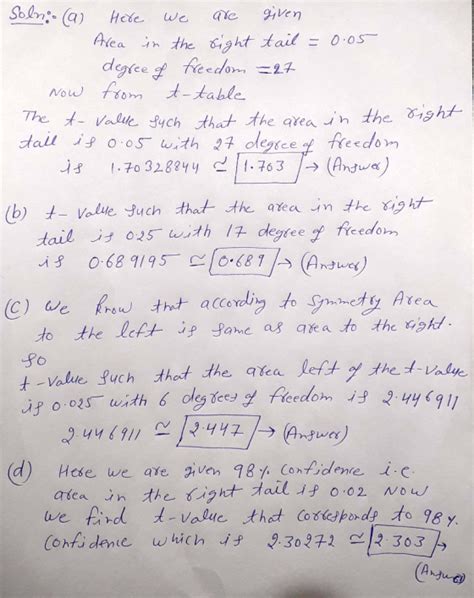 Soln:- (a) Here we are given
Area in the right tail = 0.05
degree of freedom = 27
Now from t-table
The t-value such that the area in the right
tail is 0.05 with 27 degree of freedom
is 1.70328844 ≃ 1.703 → (Answer)
(b) t-value such that the area in the right
tail is 0.25 with 17 degree of freedom
is 0.689195 ≃ 0.689 → (Answer)
(C) We know that according to symmetry Area
to the left is same as area to the right.
so
t-value such that the area left of the t-value
is 0.025 with 6 degrees of freedom is 2.446911
2.446911 ≃ 2.447 → (Answer)
(d) Here we are given 98% confidence i.e.
area in the right tail is 0.02 Now
we find t-value that corresponds to 98%
confidence which is 2.30272 ≃ 2.303 →
(Answer)